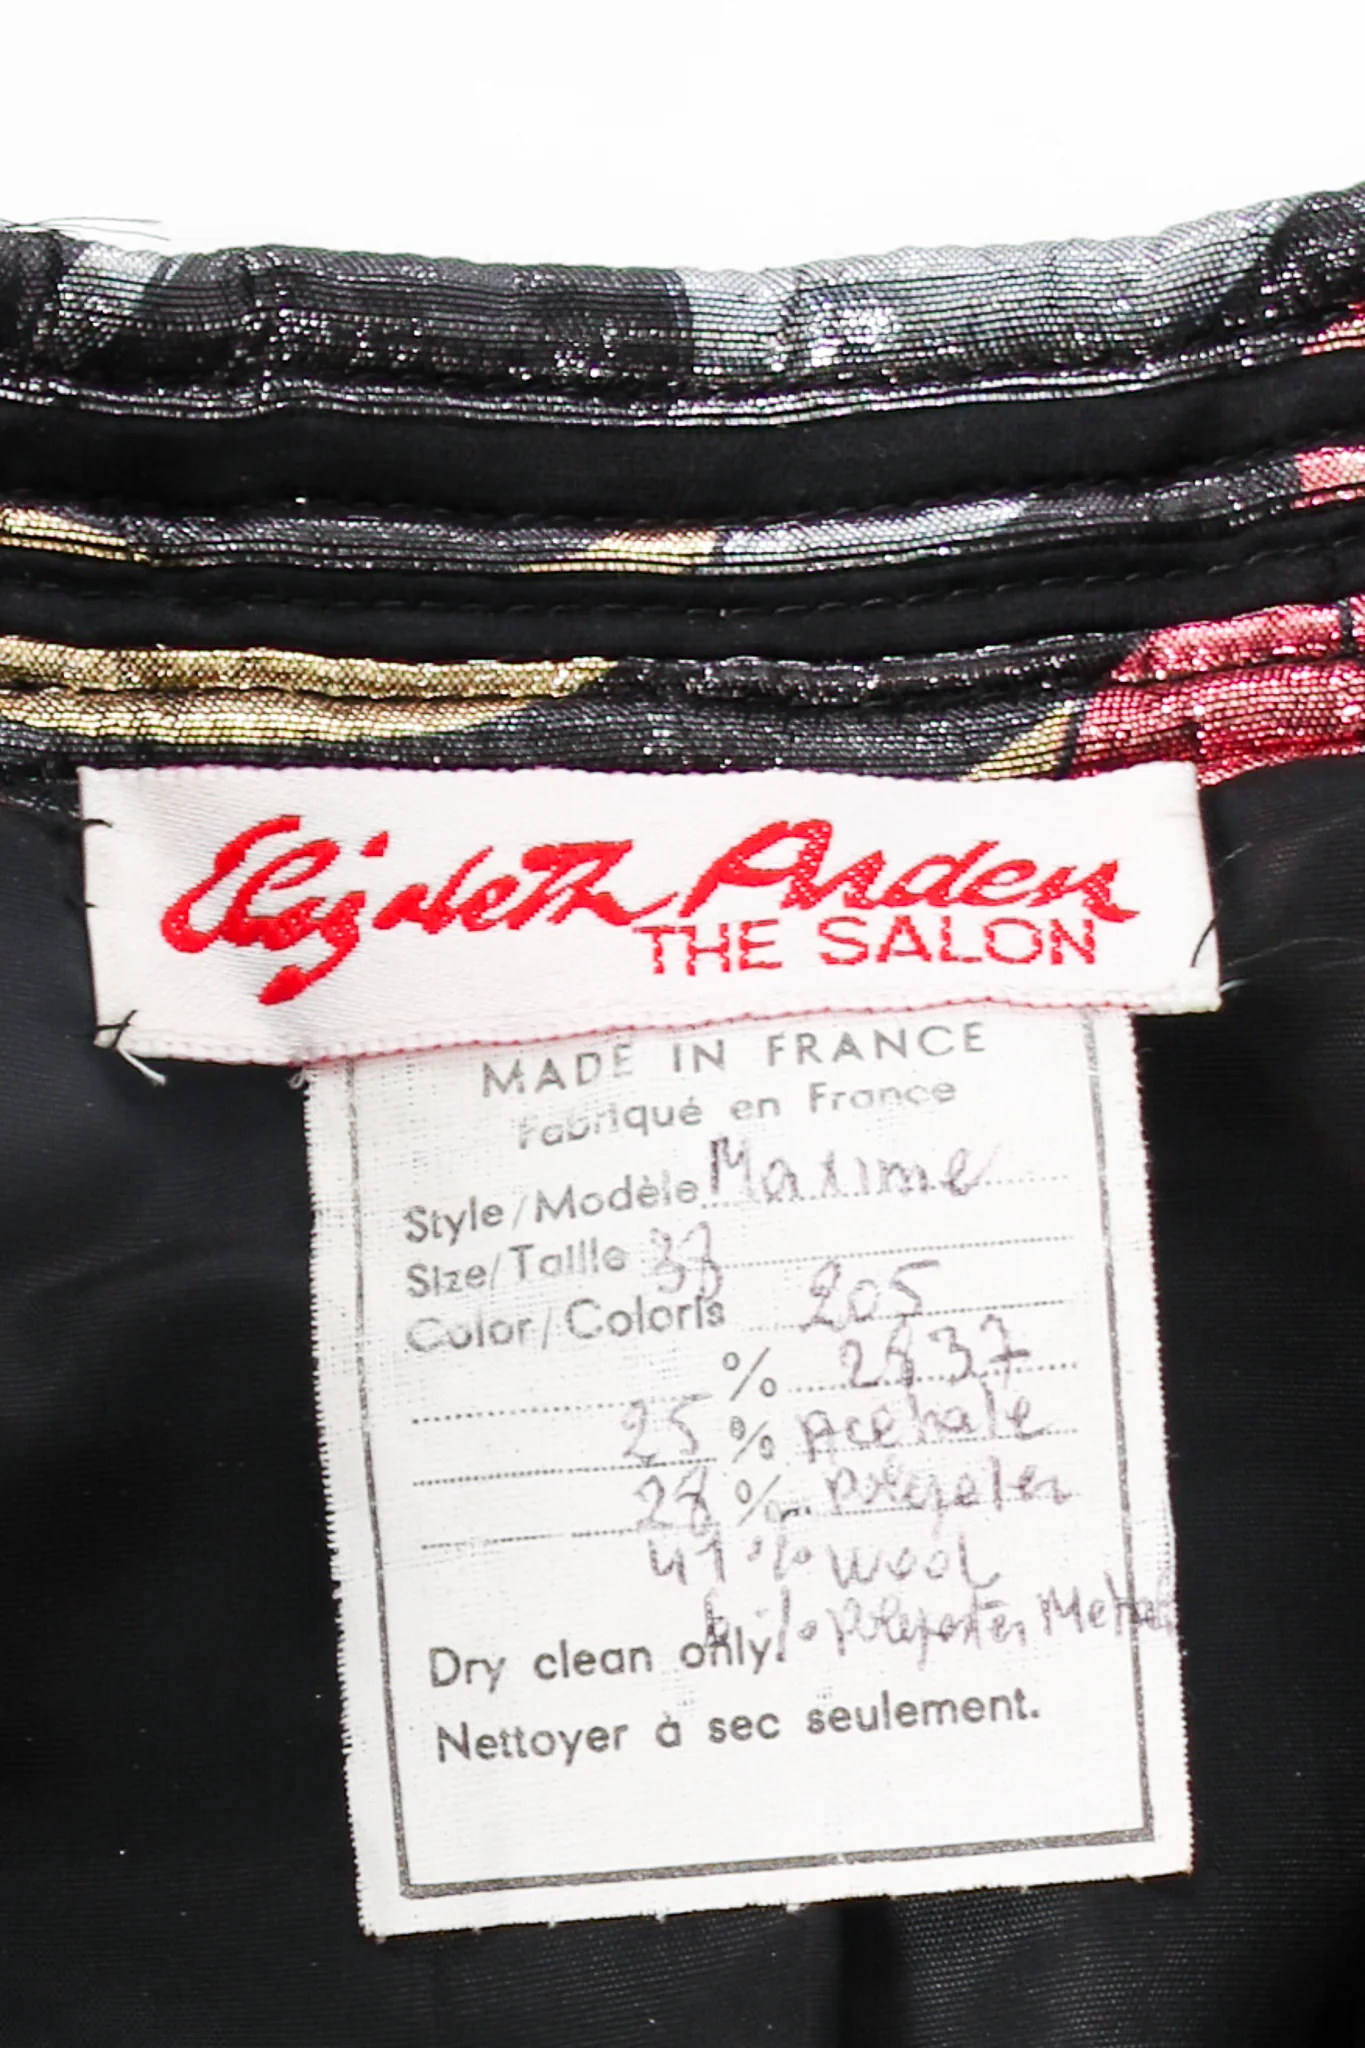 Elizabeth Arden
THE SALON
MADE IN FRANCE
Fabriqué en France
Style/Modèle Maxime
Size/Taille 38
Color/Coloris 205
% 2837
25 % Acehate
28 % Polyester
41 % WOOL
6 % Polyester Metal
Dry clean only.
Nettoyer à sec seulement.